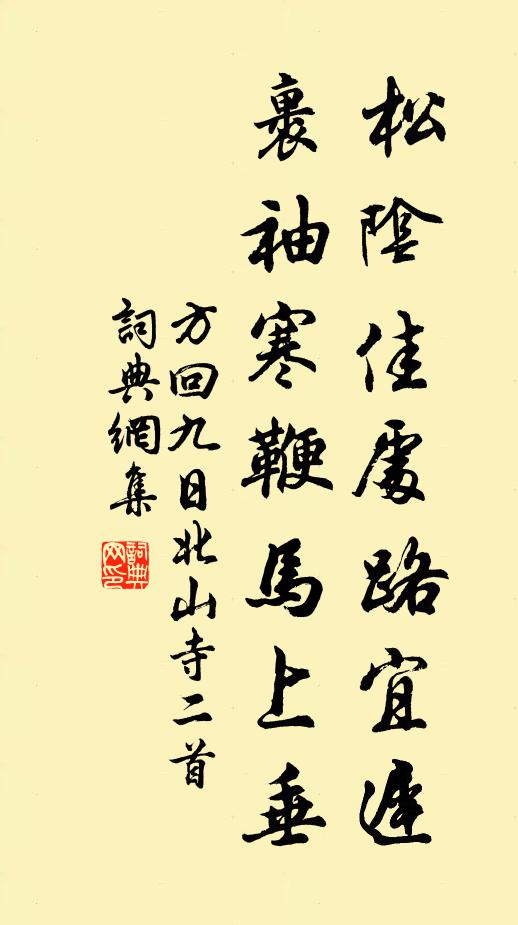 松陰佳處路宜遲
裹袖寒鞭馬上垂
方回九日北山寺二首
詞典網集
詞典网印